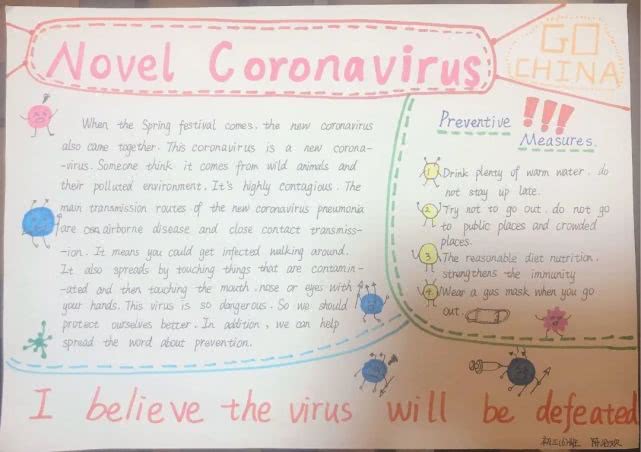 Novel Coronavirus
GO
CHINA
When the Spring festival comes, the new coronavirus
also came together. This coronavirus is a new corona-
-virus. Someone think it comes from wild animals and
their polluted environment. It's highly contagious. The
main transmission routes of the new coronavirus pneumonia
are airborne disease and close contact transmiss-
-ion. It means you could get infected walking around.
It also spreads by touching things that are contamin-
-ated and then touching the mouth, nose or eyes with
your hands. This virus is so dangerous. So we should
protect ourselves better. In addition, we can help
spread the word about prevention.
Preventive !!!
Measures.
1 Drink plenty of warm water. do
not stay up late.
2 Try not to go out. do not go
to public places and crowded
places.
3 The reasonable diet nutrition.
strengthens the immunity
4 Wear a gas mask when you go
out.
I believe the virus will be defeated